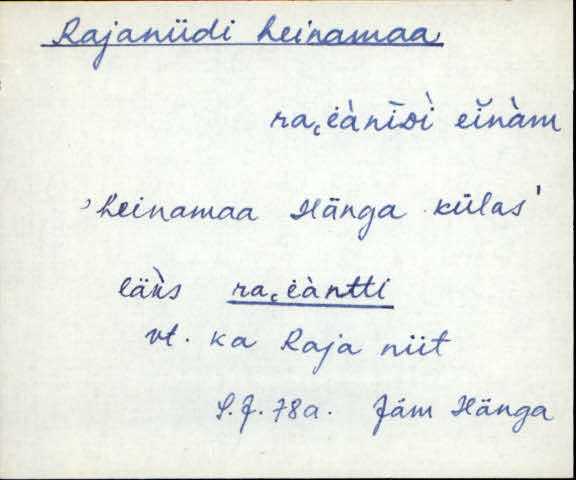 Rajaniidi heinamaa
ra͔i̯ànīᴅì eĭnàm
'heinamaa Hänga külas'
läk̀s ra͔i̯àntti
vt. ka Raja niit
S.J. 78a. Jäm Hänga